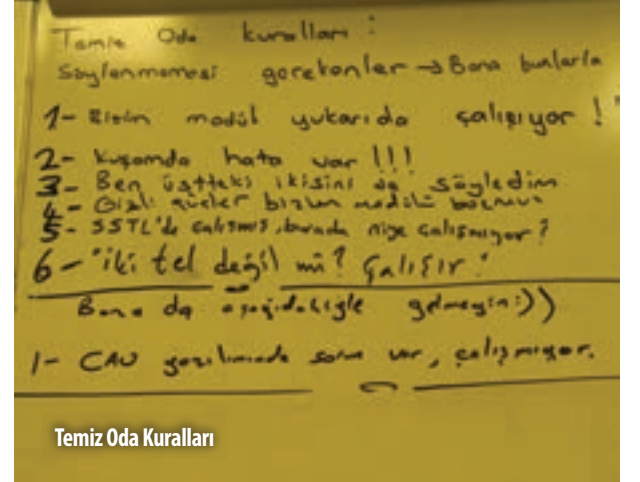 Temiz Oda kuralları :
Söylenmemesi gerekenler → Bana bunlarla
1- Bizim modül yukarıda çalışıyor !
2- Kuşamda hata var !!!
3- Ben üstteki ikisini de söyledim
4- Gizli güçler bizim modülü bozmuş
5- SSTL'de çalışmış, burada niye çalışmıyor?
6- "iki tel değil mi? Çalışır."
Bana da aşağıdakiyle gelmeyin :))
1- CAU yazılımında sorun var, çalışmıyor.
Temiz Oda Kuralları